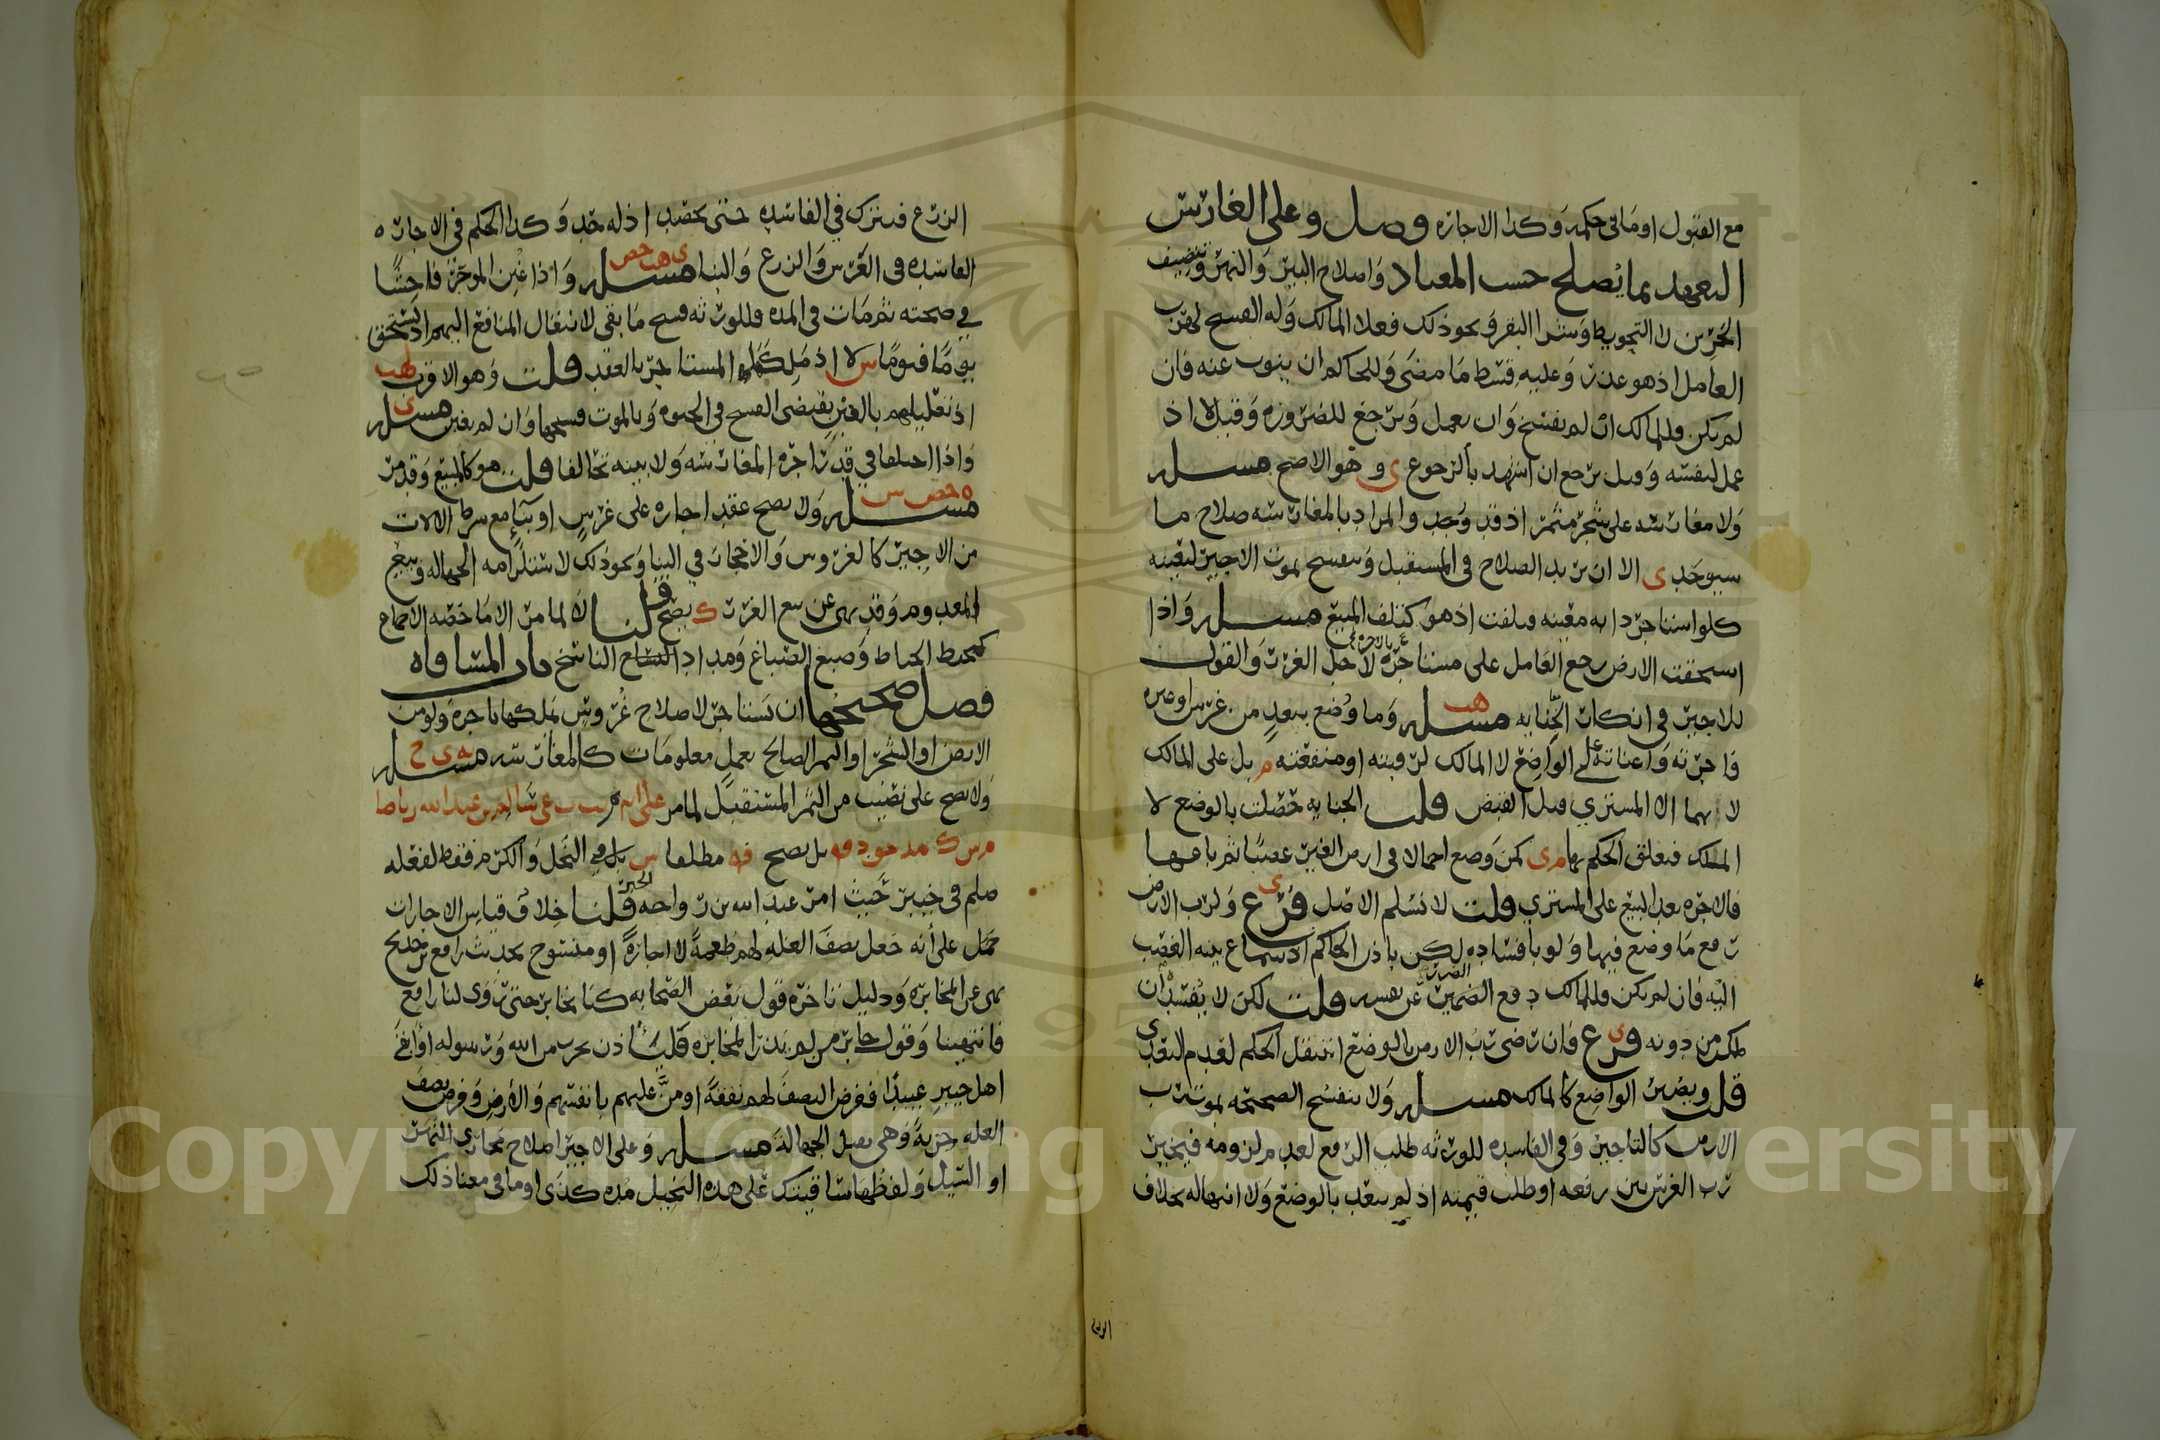 مع القبول او ما في حكمه وكذا الاجازه فصل وعلى الغارس
التعهد بما يصلح حسب المعتاد واصلاح البير والنهر وتنضيف
الخزين لا التحويط وشرا البقر ونحو ذلك فعلى المالك وله الفسخ لهرب
العامل اذ هو عذر وعليه قسط ما مضى وللحاكم ان ينوب عنه فان
لم يكن فللمالك ان لم يفسخ وان يعمل ويرجع للضروره وقيل لا اذ
عمل لنفسه وقيل يرجع ان اشهد بالرجوع ى وهو الاصح مسله
ولا مغارسه على شجر مثمر اذ قد وجد والمراد بالمغارسه صلاح ما
سيوجد ى الا ان يريد الصلاح في المستقبل وينفسخ بموت الاجير لتعينه
كلو استاجر دابه معينه فتلفت اذ هو كتلف المبيع مسله واذا
استحقت الارض رجع العامل على مستاجره لا جل الغرر والقول
للاجير في انكار الجنايه مسله وما وضع بتعد من غرس او غيره
فاجرته واعنانته على الواضع لا المالك لرقبته او منفعته م بل على المالك
لا بهما الا المشتري قبل القبض قلت الجنايه حصلت بالوضع لا
الملك فتعلق الحكم بها م ى كمن وضع احمالا في ارض الغير غصبا ثم باعها
فالاجره بعد البيع على المشتري قلت لا نسلم الاصل فرع ولرب الارض
رفع ما وضع فيها ولو بافساده لكن باذن الحاكم
اليه فان لم يكن فللمالك دفع الضرر عن نفسه قلت لكن لا يفسد ان
تمكن من دونه فرع فان رضي رب الارض بالوضع انتقل الحكم لعدم التعدي
قلت ويصير الواضع كالمالك مسله ولا تنفسخ الصحيحه بموت رب
الارض كالتاجير وفي الفاسده للورثه طلب الرفع لعدم لزومه فيخير
رب الغرس بين رفعه او طلب قيمته اذ لم يتعد بالوضع ولا انتهاله بخلاف
الزرع
الزرع فيترك في الفاسده حتى يحصد اذ له حد وكذا الحكم في الاجاره
الفاسده في الغرس والزرع والبنا مسله واذا غبن الموجر فاحشا
في صحته ثم مات في المده فللورثه فسخ ما بقى لانتقال المنافع اليهم اذ تستحق
يوما فيوما س لا اذ ملك كلها المستاجر بالعقد قلت وهو الاقرب
اذ تقليلهم بالغبن يقتضي الفسخ في الحيوه وبالموت فسخها وان لم يغبن مسله
واذا اختلفا في قدر اجره المغارسه ولا بينه تحالفا قلت هو كالبيع وقد مر
مسله ولا يصح عقد اجاره على غرس او بنا مع شرط الالات
من الاجير كالغروس والاحجار في البنا ونحو ذلك لاستلزامه الجهاله وبيع
المعدوم وقد نهى عن بيع الغرر ك يصح قلنا لا لما مر الا ما خصه الاجماع
كخيط الخياط وصبغ الصباغ ومداد النساخ الناسخ باب المساقاه
فصل صحيحها ان يستاجر لاصلاح غروس يملكها باجره ولو من
الارض او الشجر او الثمر الصالح بعمل معلومات كالمغارسه مسله
ولا يصح على نصيب من الثمر المستقبل لما مر
بل يصح مطلقا س بل في النخل والكرم فقط لفعله
صلعم في خيبر حيث امر عبد الله بن رواحه قلنا الخبر خلاف قياس الاجارات
محمل على انه جعل نصف الغله لهم طعمة لا اجارة او منسوخ بحديث رافع بن خديج
نهى عن المخابره ودليل تاخره قول بعض الصحابه كنا نخابر حتى روى لنا رافع
فانتهينا وقول جابر من لم يذر المخابره فلياذن بحرب من الله ورسوله او ابقى
اهل خيبر عبيدا ففرض النصف لهم نفقة او من عليهم بانفسهم والارض وفرض نصف
الغله جزية وهي تقبل الجهالة مسله وعلى الاجير اصلاح مجاري النهر
او السيل ولفظها ساقيتك على هذه النخيل مده كذى او ما في معنا ذلك